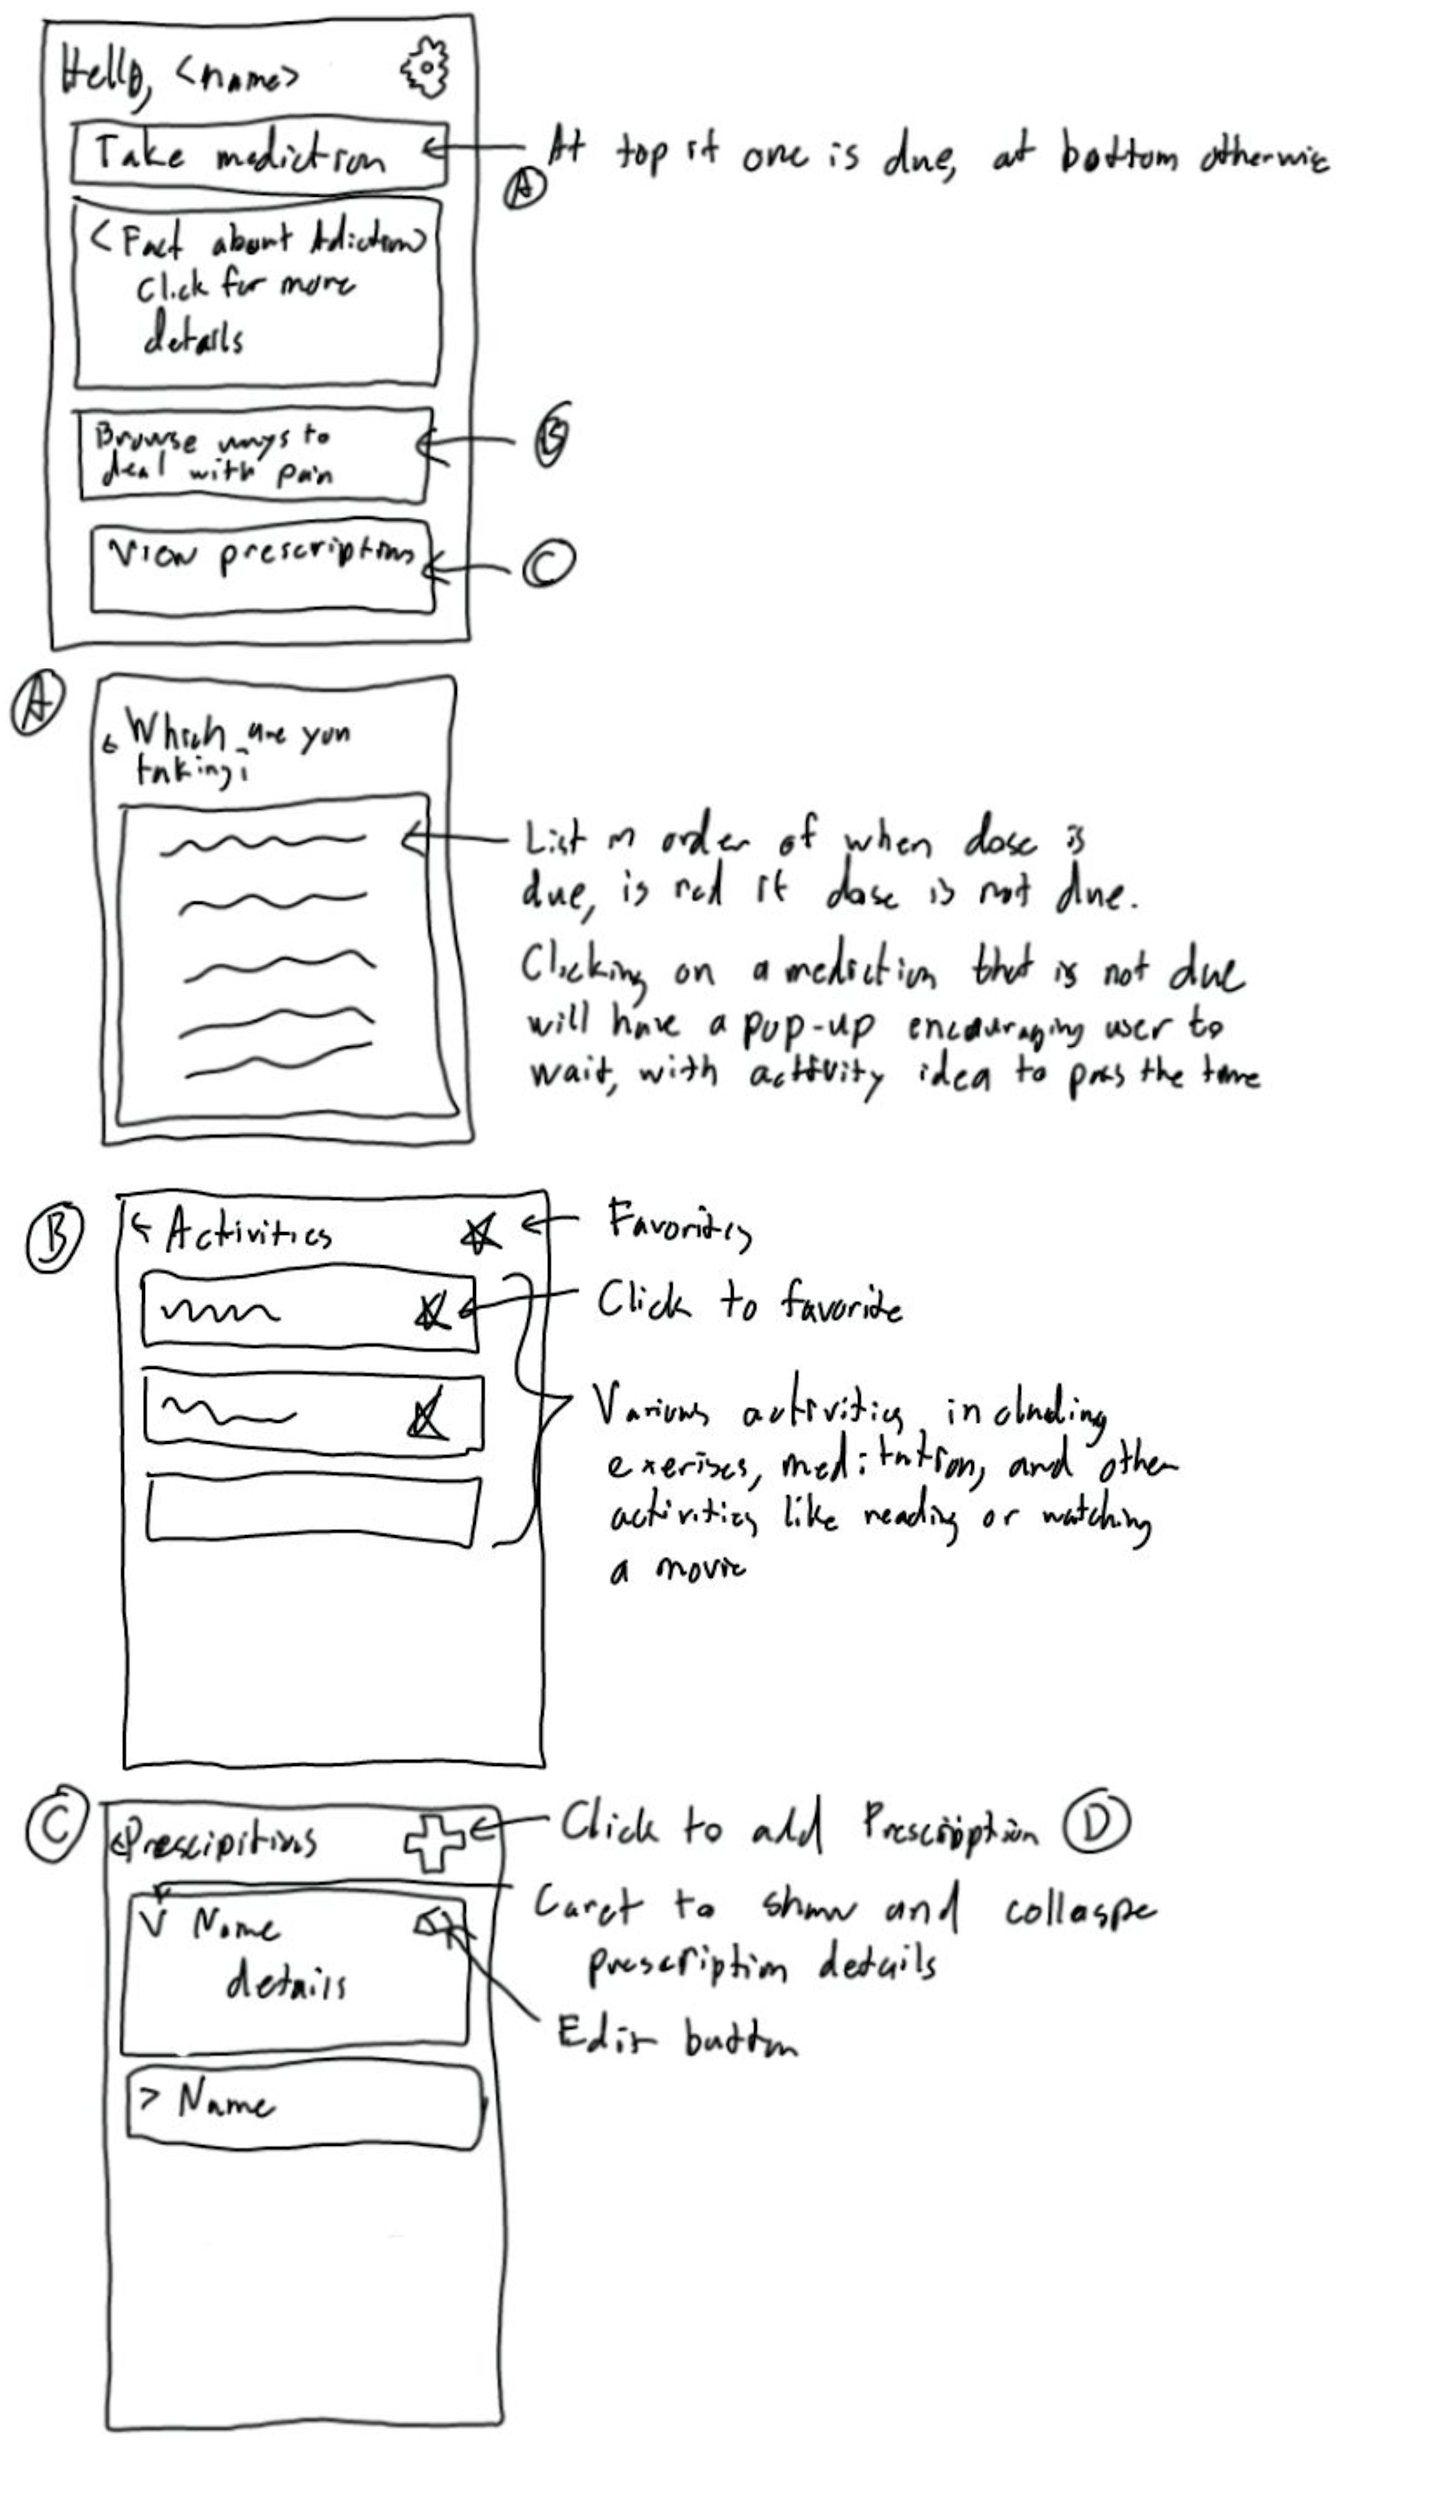 Hello, <name>
Take mediction
At top if one is due, at bottom otherwise
A
<Fact about Adiction>
Click for more
details
Browse ways to
deal with pain
B
View prescriptions
C
A
Which are you
taking?
List in order of when dose is
due, is red if dose is not due.
Clicking on a mediction that is not due
will have a pop-up encouraging user to
wait, with activity idea to pass the time
B
Activities
Favorites
Click to favorite
Various activities, including
exerises, meditation, and other
activities like reading or watching
a movie
C
Prescipitions
Click to add Prescription D
V Name
details
Caret to show and collaspe
prescription details
Edit button
> Name